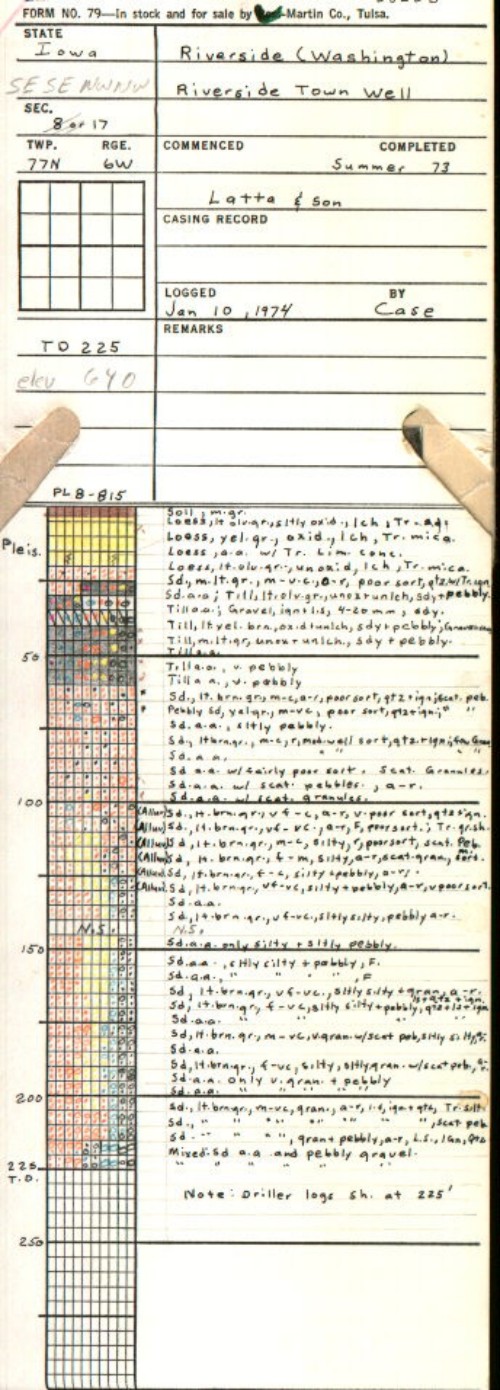 FORM NO. 79—In stock and for sale by -Martin Co., Tulsa.
STATE
Iowa
Riverside (Washington)
SE SE NW NW
Riverside Town Well
SEC.
8 or 17
TWP. RGE. COMMENCED COMPLETED
77N 6W Summer 73
Latta & Son
CASING RECORD
LOGGED BY
Jan 10, 1974 Case
REMARKS
TD 225
elev 640
PL 8-815
Soil, m.gr.
Loess, lt olv.gr., sltly oxid., lch, Tr.
Loess, yel.gr., oxid., lch, Tr. mica.
Pleis.
Loess, a.a. w/ Tr. Lim. conc.
Loess, lt.olv.gr., unoxid, lch, Tr. mica.
Sd, m.lt.gr., m-vc, a-r, poor sort, qtz w/Tr. ign
Sd.a.a; Till, lt.olv.gr., unox+unlch, sdy+pebbly.
Till a.a.; Gravel, ign+l.s, 4-20mm, sdy.
Till, lt yel. brn., oxid+unlch, sdy+pebbly;
Till, m.lt.gr, unox+unlch, sdy + pebbly.
Till a.a.
50
Till a.a., v. pebbly
Till a.a., v. pebbly
Sd., lt. brn.gr., m-c, a-r, poor sort, qtz+ign; scat. peb.
Pebbly Sd, yel.gr., m-vc, poor sort, qtz+ign; " "
Sd. a.a., sltly pebbly.
Sd., lt brn.gr., m-c, r, mod. well sort, qtz.+ign; few Gran
Sd. a.a.
Sd. a.a. w/fairly poor sort. Scat. Granules.
Sd. a.a. w/ scat. pebbles, a-r.
Sd. a.a. w/ scat. granules.
100
(Alluv) Sd., lt. brn.gr., vf-c, a-r, v. poor sort, qtz+ign.
(Alluv) Sd., lt. brn.gr., vf-vc, a-r, F, poor sort.; Tr. gr. sh.
(Alluv) Sd, lt. brn.gr., m-c, silty, r, poor sort, scat. Peb.
(Alluv) Sd, lt. brn.gr., f-m, silty, a-r, scat. gran, sort.
(Alluv) Sd., lt. brn.gr., f-c, silty + pebbly, a-r.
(Alluv) Sd, lt. brn.gr., vf-vc, silty + pebbly, a-r, v poor sort.
Sd. a.a.
Sd., lt. brn.gr., vf-vc, sltly silty, pebbly a-r.
N.S. N.S.
150
Sd. a.a. only silty + sltly pebbly.
Sd. a.a., sltly silty + pebbly, F.
Sd. a.a., " " " ", F
Sd, lt-brn.gr., vf-vc., sltly silty + gran, a-r.
Sd, lt. brn.gr., f-vc, sltly silty + pebbly, qtz+ls+ign
Sd. a.a.
Sd, lt. brn.gr., m-vc, v. gran. w/scat peb, sltly silty,
Sd. a.a.
Sd, lt. brn.gr., f-vc, silty, sltly gran. w/scat peb, a-r.
Sd. a.a. only v. gran + pebbly
Sd. a.a. " " " "
200
Sd., lt. brn.gr, m-vc, gran., a-r, l.s, ign.+ qtz, Tr. silt
Sd., " " " " " ", scat peb
Sd. " " " ", gran + pebbly, a-r, L.S., Ign, Qtz
Mixed Sd a.a and pebbly gravel.
" " " "
225
T.D.
Note: Driller logs sh. at 225'
250